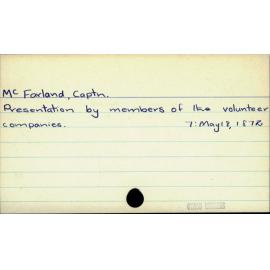 Mc Farland, Captn.
Presentation by members of the volunteer
companies. 7: May 18, 1872